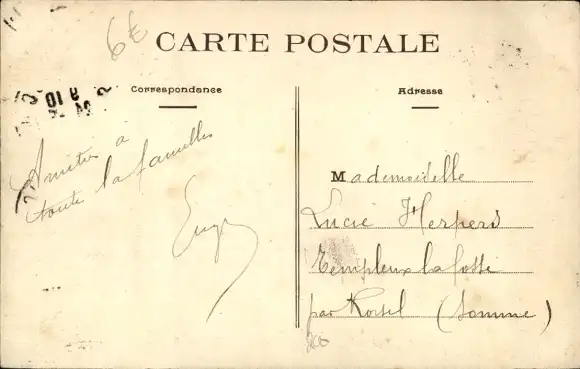 6€
CARTE POSTALE
Correspondance
Adresse
Amitiés a
toute la famille
Mademoiselle
Lucie Herpers
Templeux la fosse
par Roisel (Somme)